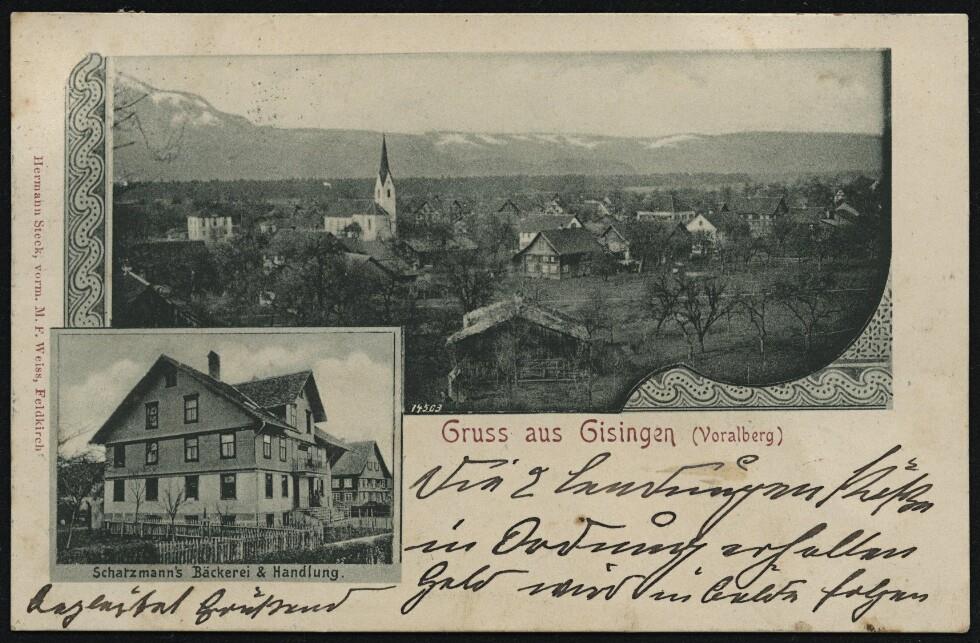 Hermann Steck, vorm. M. F. Weiss, Feldkirch
14503
Gruss aus Gisingen (Voralberg)
Schatzmann's Bäckerei & Handlung.
Die 2 Sendungen
in Ordnung erhalten
Geld wird in Bälde folgen
Grüßend